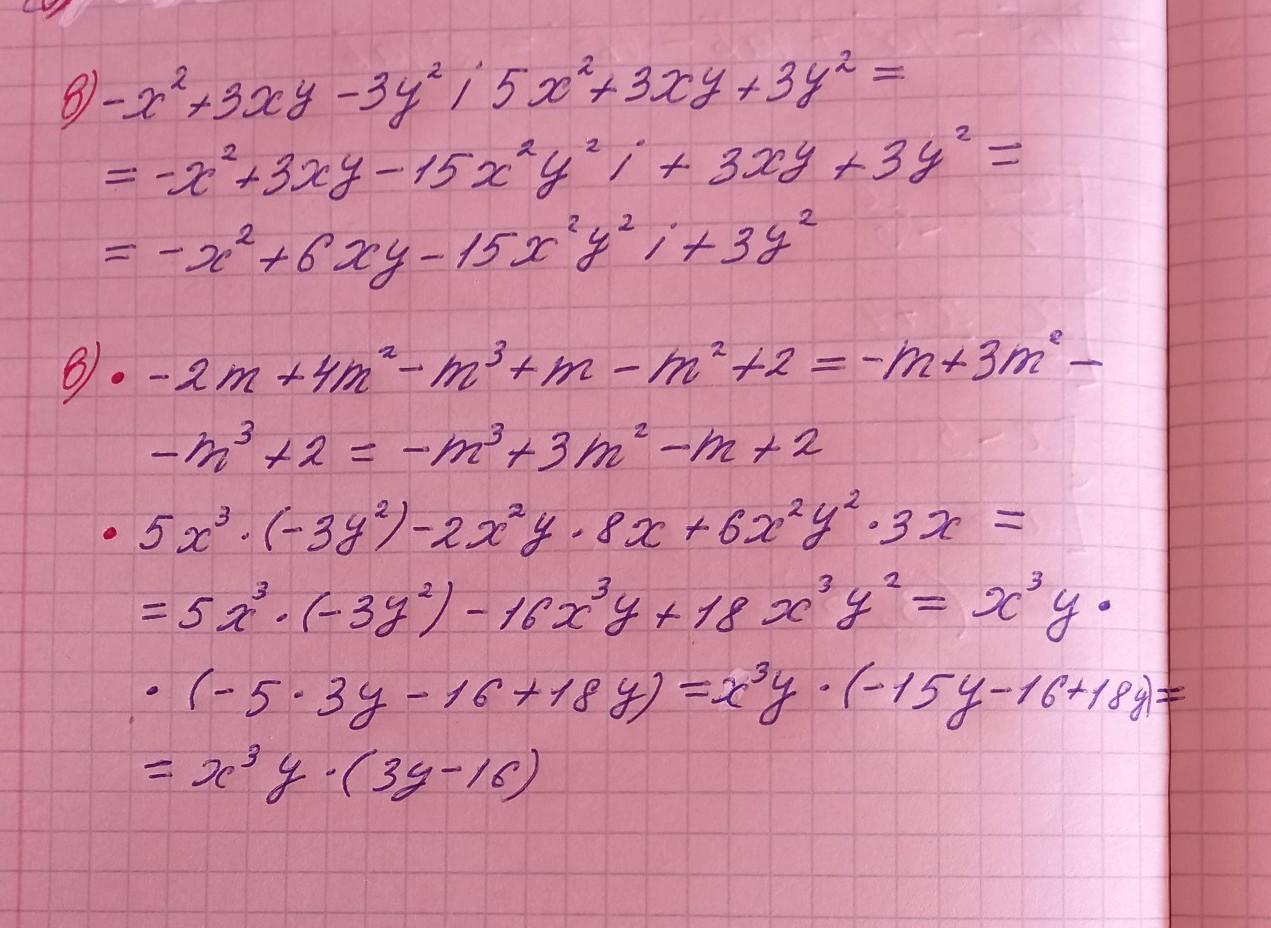 в) -x²+3xy-3y² i 5x²+3xy+3y² =
= -x²+3xy-15x²y² i + 3xy+3y² =
= -x²+6xy-15x²y² i+3y²
в) • -2m+4m²-m³+m-m²+2=-m+3m²-
-m³+2=-m³+3m²-m+2
• 5x³·(-3y²)-2x²y·8x+6x²y²·3x =
=5x³·(-3y²)-16x³y+18x³y²= x³y·
·(-5·3y-16+18y)=x³y·(-15y-16+18y)=
= x³y·(3y-16)